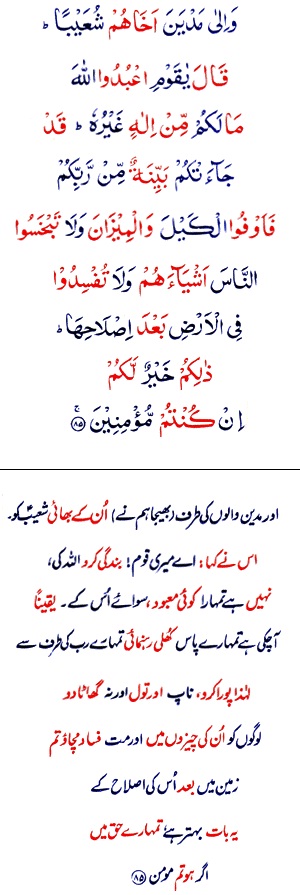 وَاِلٰى مَدْيَنَ اَخَاهُمْ شُعَيْبًا ؕ
قَالَ يٰقَوْمِ اعْبُدُوا اللّٰهَ
مَا لَكُمْ مِّنْ اِلٰهٍ غَيْرُهٗ ؕ قَدْ
جَآءَتْكُمْ بَيِّنَةٌ مِّنْ رَّبِّكُمْ
فَاَوْفُوا الْكَيْلَ وَالْمِيْزَانَ وَلَا تَبْخَسُوا
النَّاسَ اَشْيَآءَهُمْ وَلَا تُفْسِدُوْا
فِى الْاَرْضِ بَعْدَ اِصْلَاحِهَا ؕ
ذٰلِكُمْ خَيْرٌ لَّكُمْ
اِنْ كُنْتُمْ مُّؤْمِنِيْنَ ۚ ﴿۸۵﴾
اور مدین والوں کی طرف (بھیجا ہم نے) اُن کے بھائی شعیبؑ کو۔
اس نے کہا: اے میری قوم! بندگی کرو اللہ کی،
نہیں ہے تمہارا کوئی معبود، سوائے اُس کے۔ یقیناً
آچکی ہے تمہارے پاس کُھلی رہنمائی تمہارے رب کی طرف سے
لہٰذا پورا کرو، ناپ اور تول اور نہ گھاٹا دو
لوگوں کو اُن کی چیزوں میں اور مت فساد مچاؤ تم
زمین میں بعد اُس کی اصلاح کے
یہ بات بہتر ہے تمہارے حق میں
اگر ہو تم مومن ﴿۸۵﴾